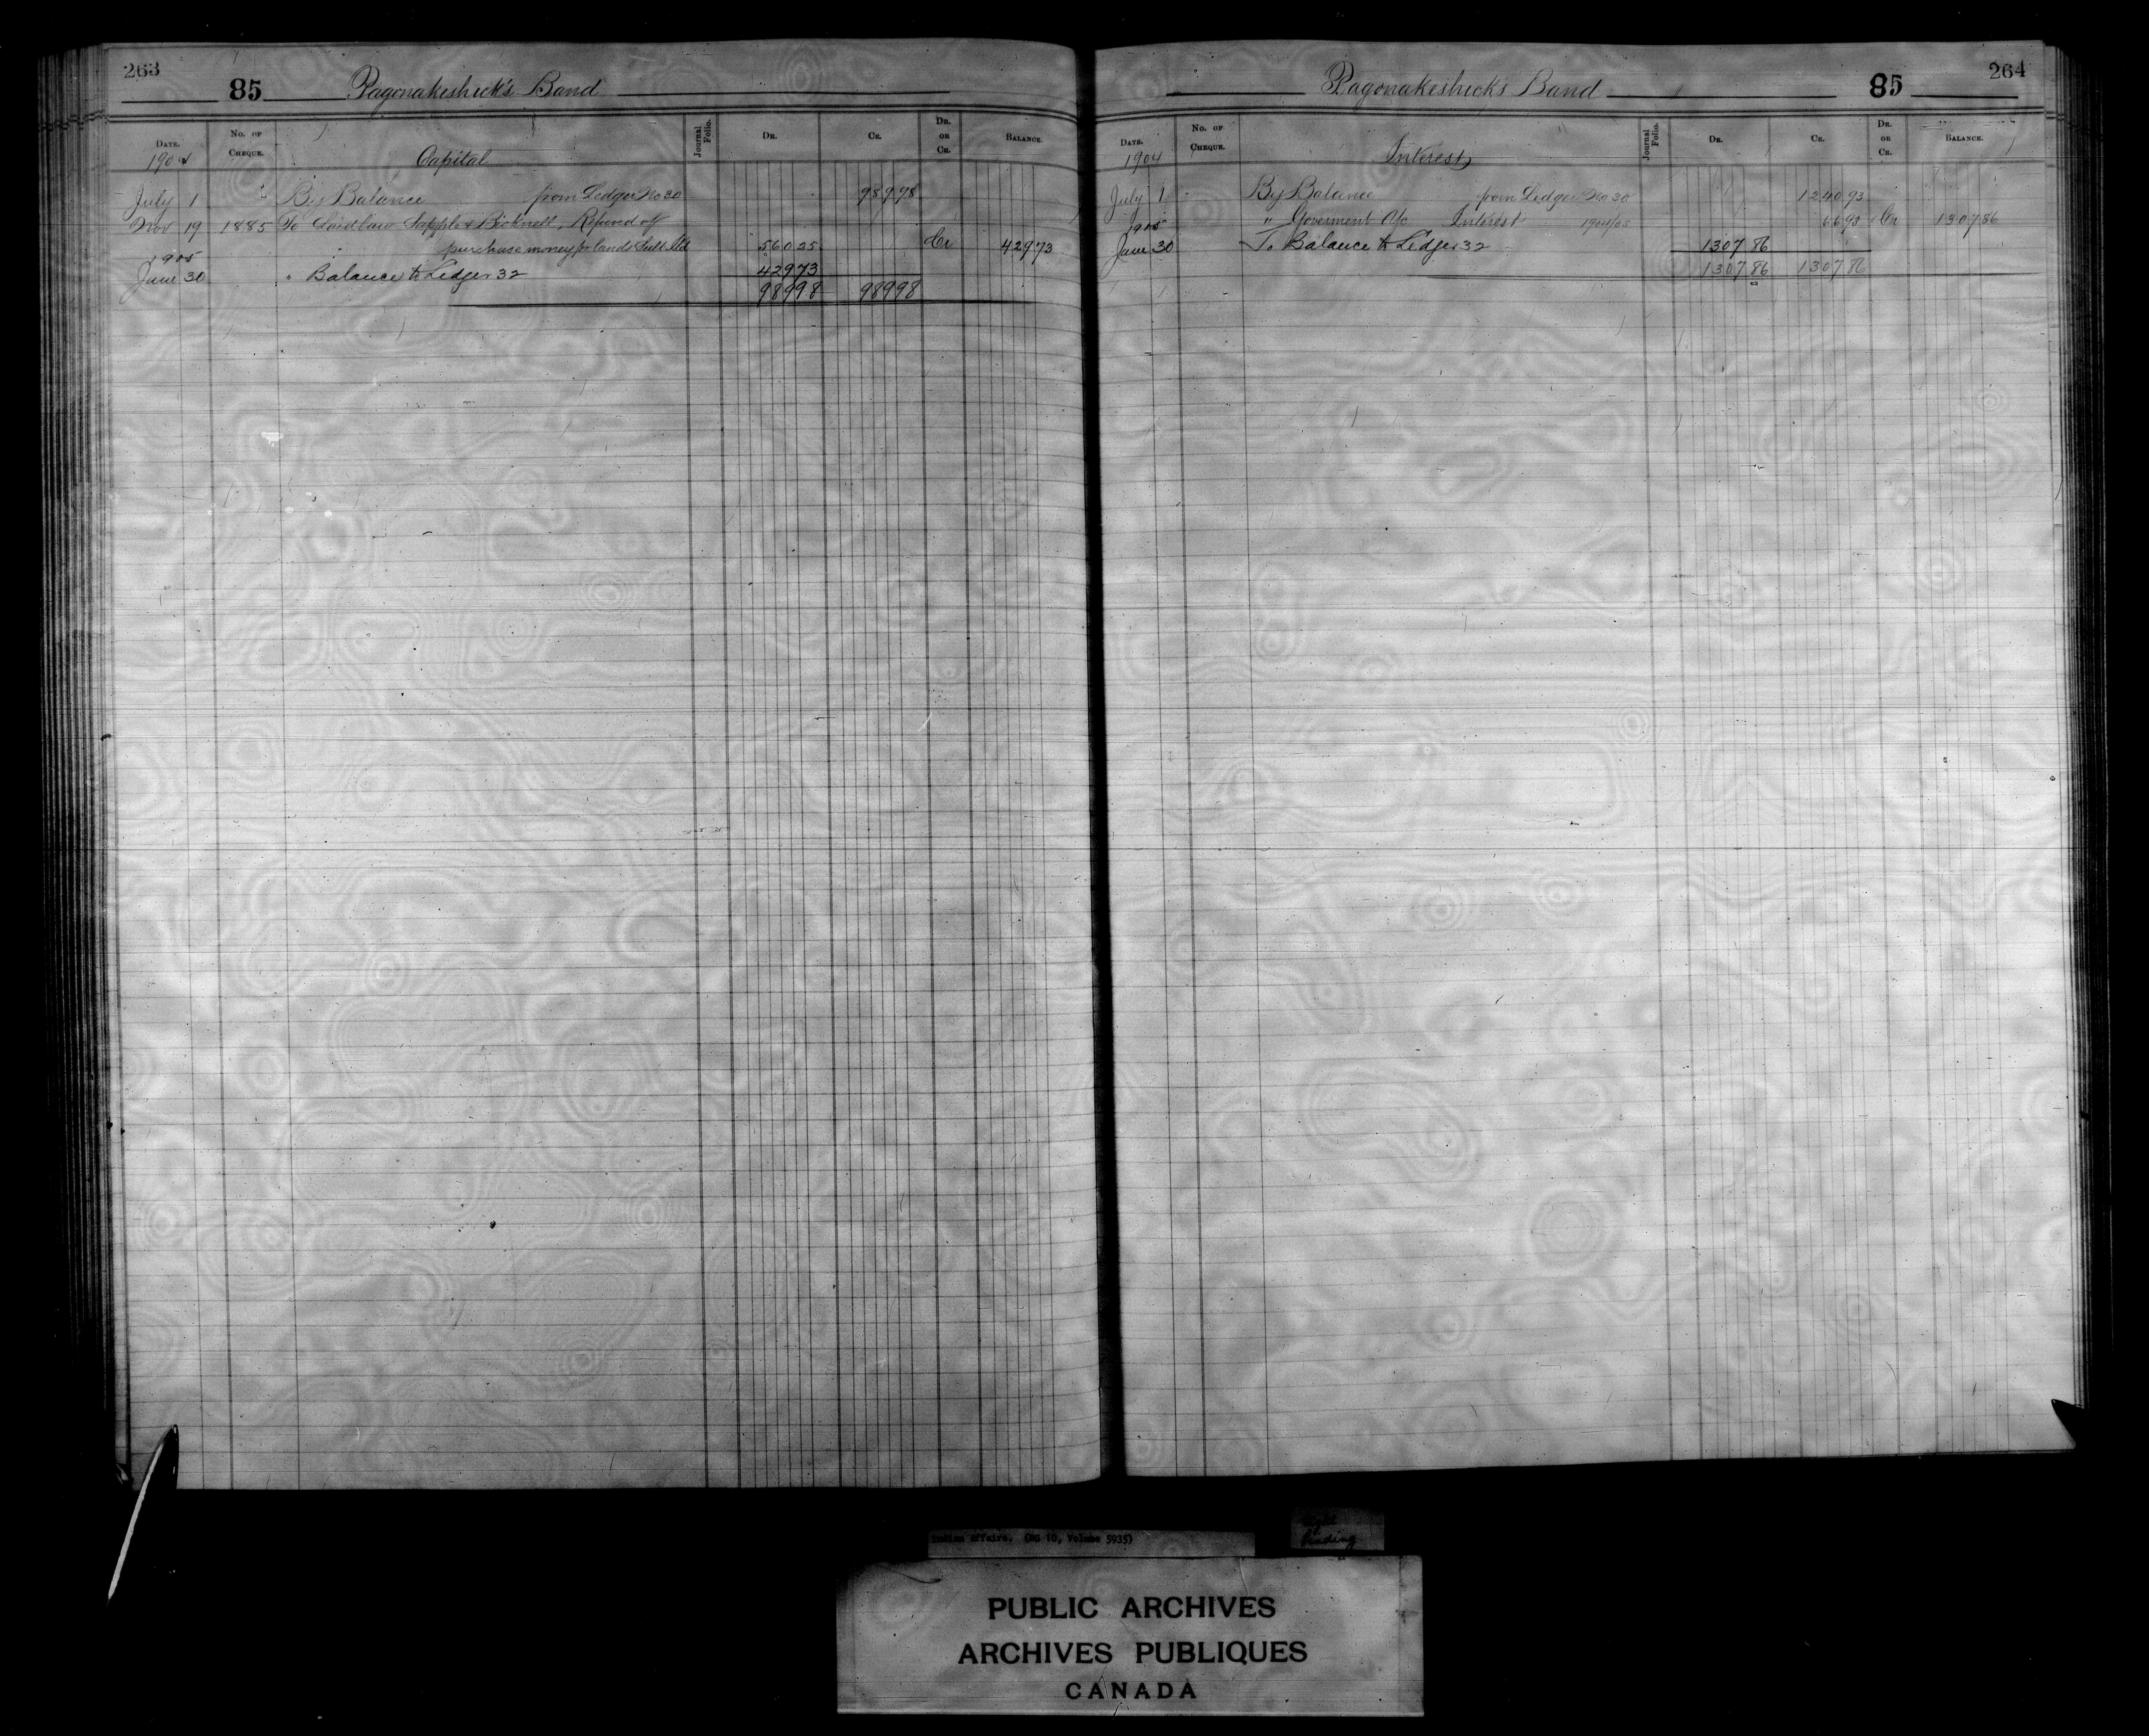 263
85 Pagonakeshick's Band
DATE. No. OF CHEQUE. Journal Folio. DR. CR. DR. OR CR. BALANCE.
1904 Capital
July 1 By Balance from Ledger No 30 989 98
Nov 19 1885 To Laidlaw & Bicknell, Refund of
purchase money for lands 560 25 Cr 429 73
1905
June 30 " Balance to Ledger 32 429 73
989 98 989 98
Pagonakeshick's Band 85
264
DATE. No. OF CHEQUE. Journal Folio. DR. CR. DR. OR CR. BALANCE.
1904 Interest
July 1 By Balance from Ledger No 30 1240 93
" Goverment A/c Interest 1904/05 66 93 Cr 1307 86
1905
June 30 To Balance to Ledger 32 1307 86
1307 86 1307 86
Indian Affairs. (RG 10, Volume 5935)
Binding
PUBLIC ARCHIVES
ARCHIVES PUBLIQUES
CANADA